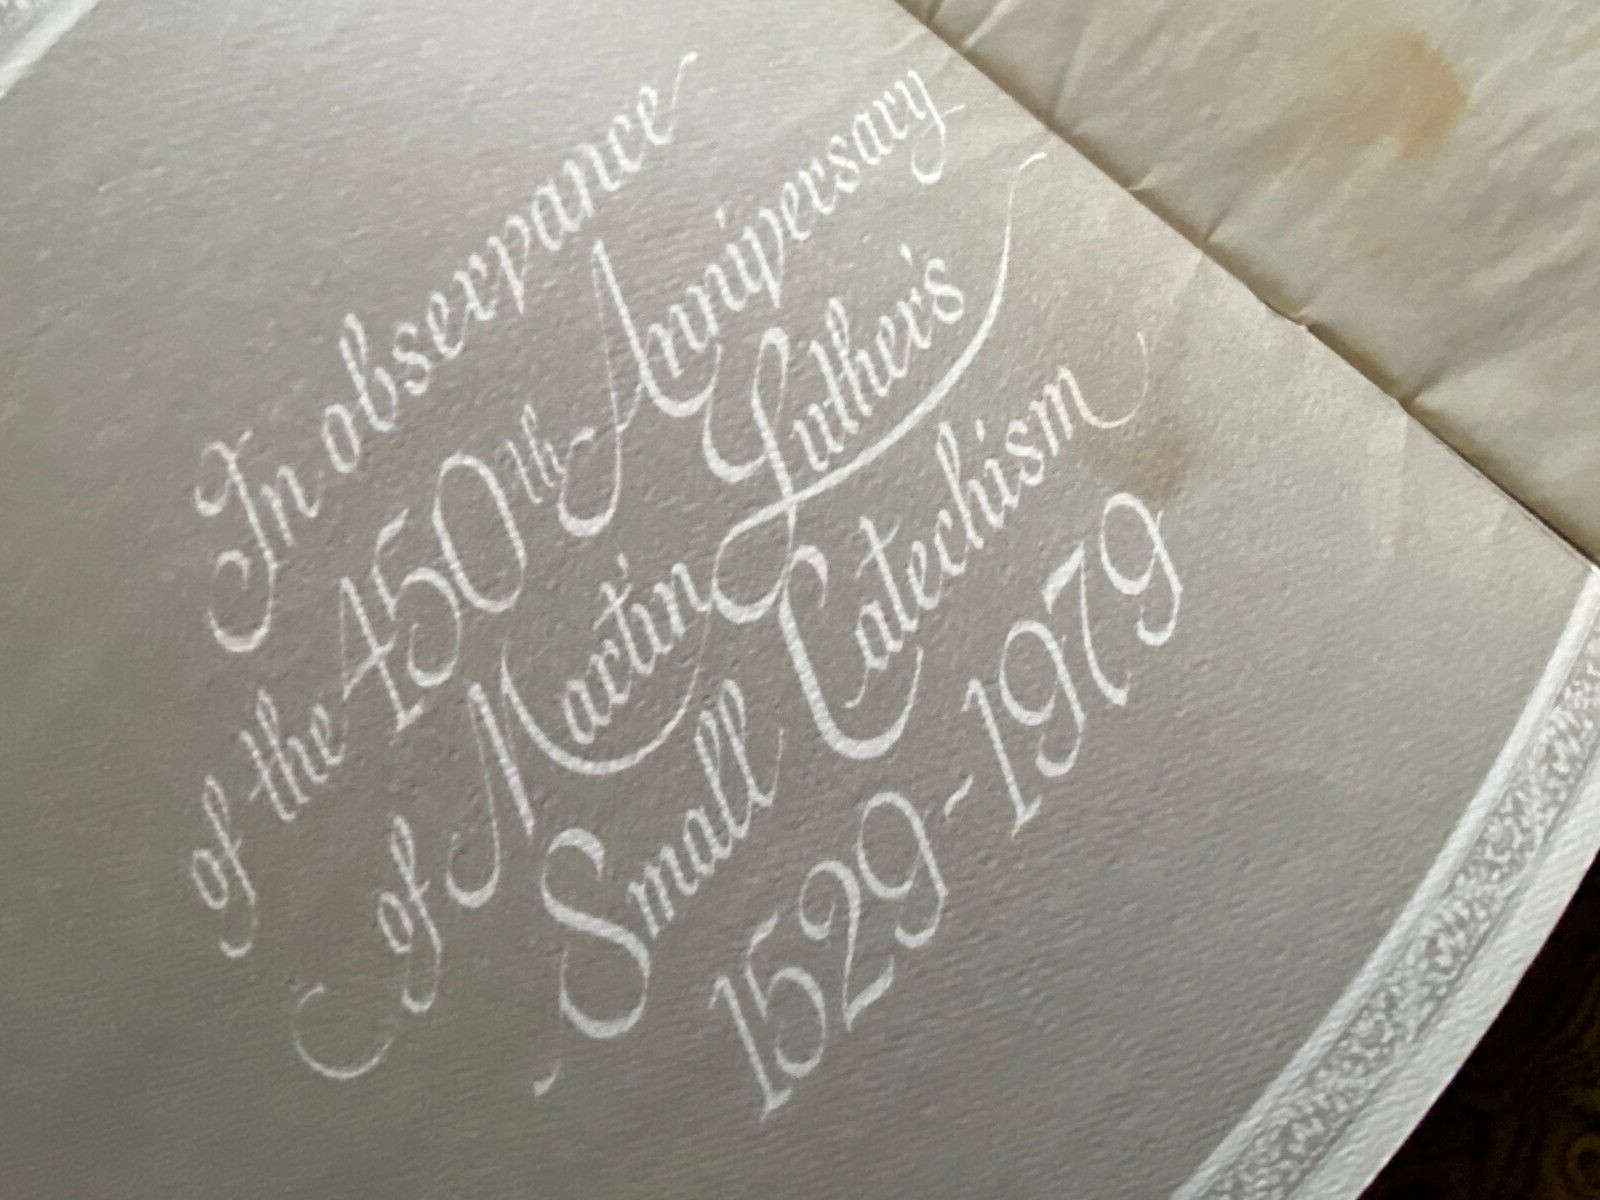 In observance
of the 450th Anniversary
of Martin Luther's
Small Catechism
1529-1979